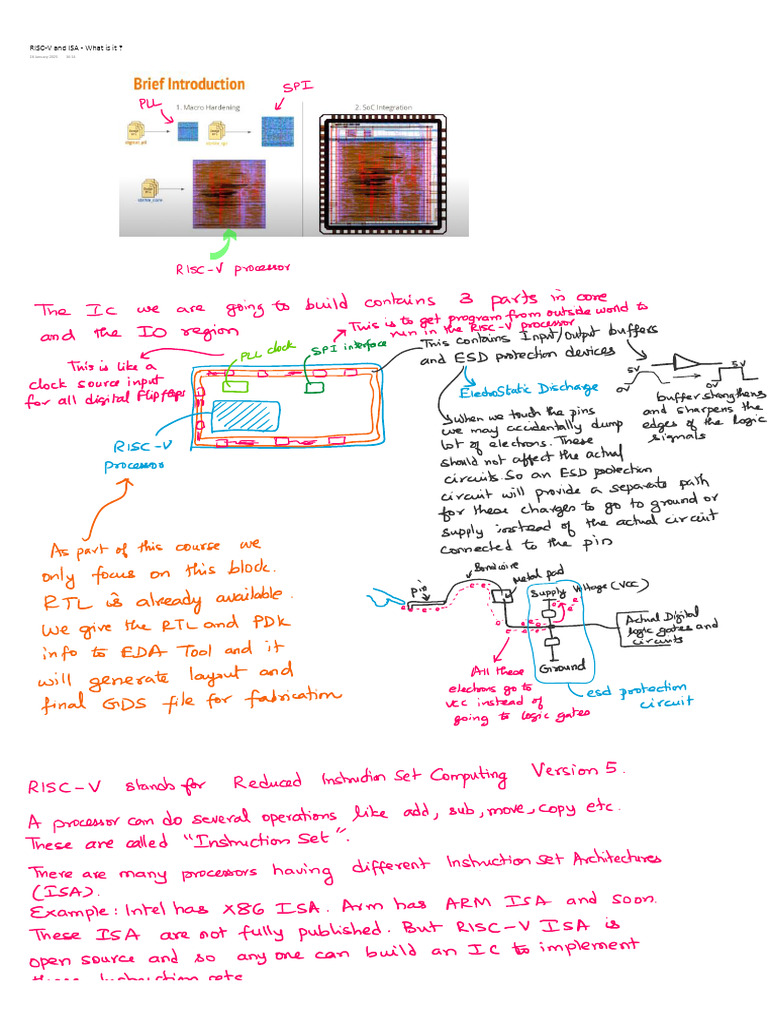 RISC-V and ISA - What is it ?
Brief Introduction
PLL
SPI
1. Macro Hardening
2. SoC Integration
RISC-V processor
The IC we are going to build contains 3 parts in core
and the IO region
This is to get program from outside world to
run in the RISC-V processor
This is like a
clock source input
for all digital Flipflops
PLL clock
SPI interface
RISC-V
processor
This contains Input/Output buffers
and ESD protection devices
ElectroStatic Discharge
5V
0V
5V
0V
buffer strengthens
and sharpens the
edges of the logic
signals
When we touch the pins
we may accidentally dump
lot of electrons. These
should not affect the actual
circuits. So an ESD protection
circuit will provide a separate path
for these charges to go to ground or
supply instead of the actual circuit
connected to the pin
As part of this course we
only focus on this block.
RTL is already available.
We give the RTL and PDK
info to EDA Tool and it
will generate layout and
final GDS file for fabrication
Pin
Bondwire
Metal pad
Supply Voltage (VCC)
Actual Digital
logic gates and
circuits
Ground
All these
electrons go to
VCC instead of
going to logic gates
esd protection
circuit
RISC-V stands for Reduced Instruction Set Computing Version 5.
A processor can do several operations like add, sub, move, copy etc.
These are called "Instruction Set".
There are many processors having different Instruction Set Architectures
(ISA).
Example: Intel has X86 ISA. Arm has ARM ISA and soon.
These ISA are not fully published. But RISC-V ISA is
open source and so any one can build an IC to implement